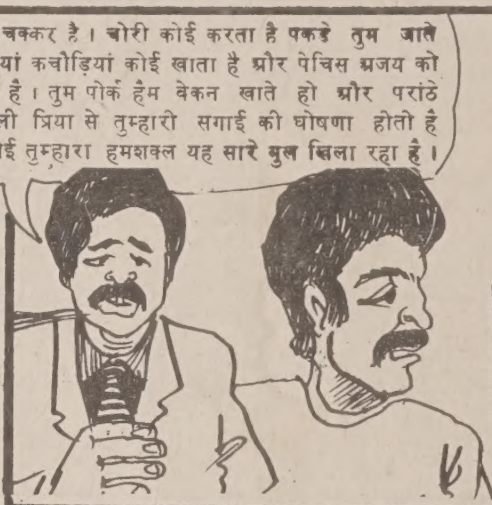 चक्कर है । चोरी कोई करता है पकडे तुम जाते
यां कचौड़ियां कोई खाता है और पेचिस अजय को
है । तुम पोर्क हैम बेकन खाते हो और परांठे
ली प्रिया से तुम्हारी सगाई की घोषणा होती है
ई तुम्हारा हमशक्ल यह सारे गुल खिला रहा है ।